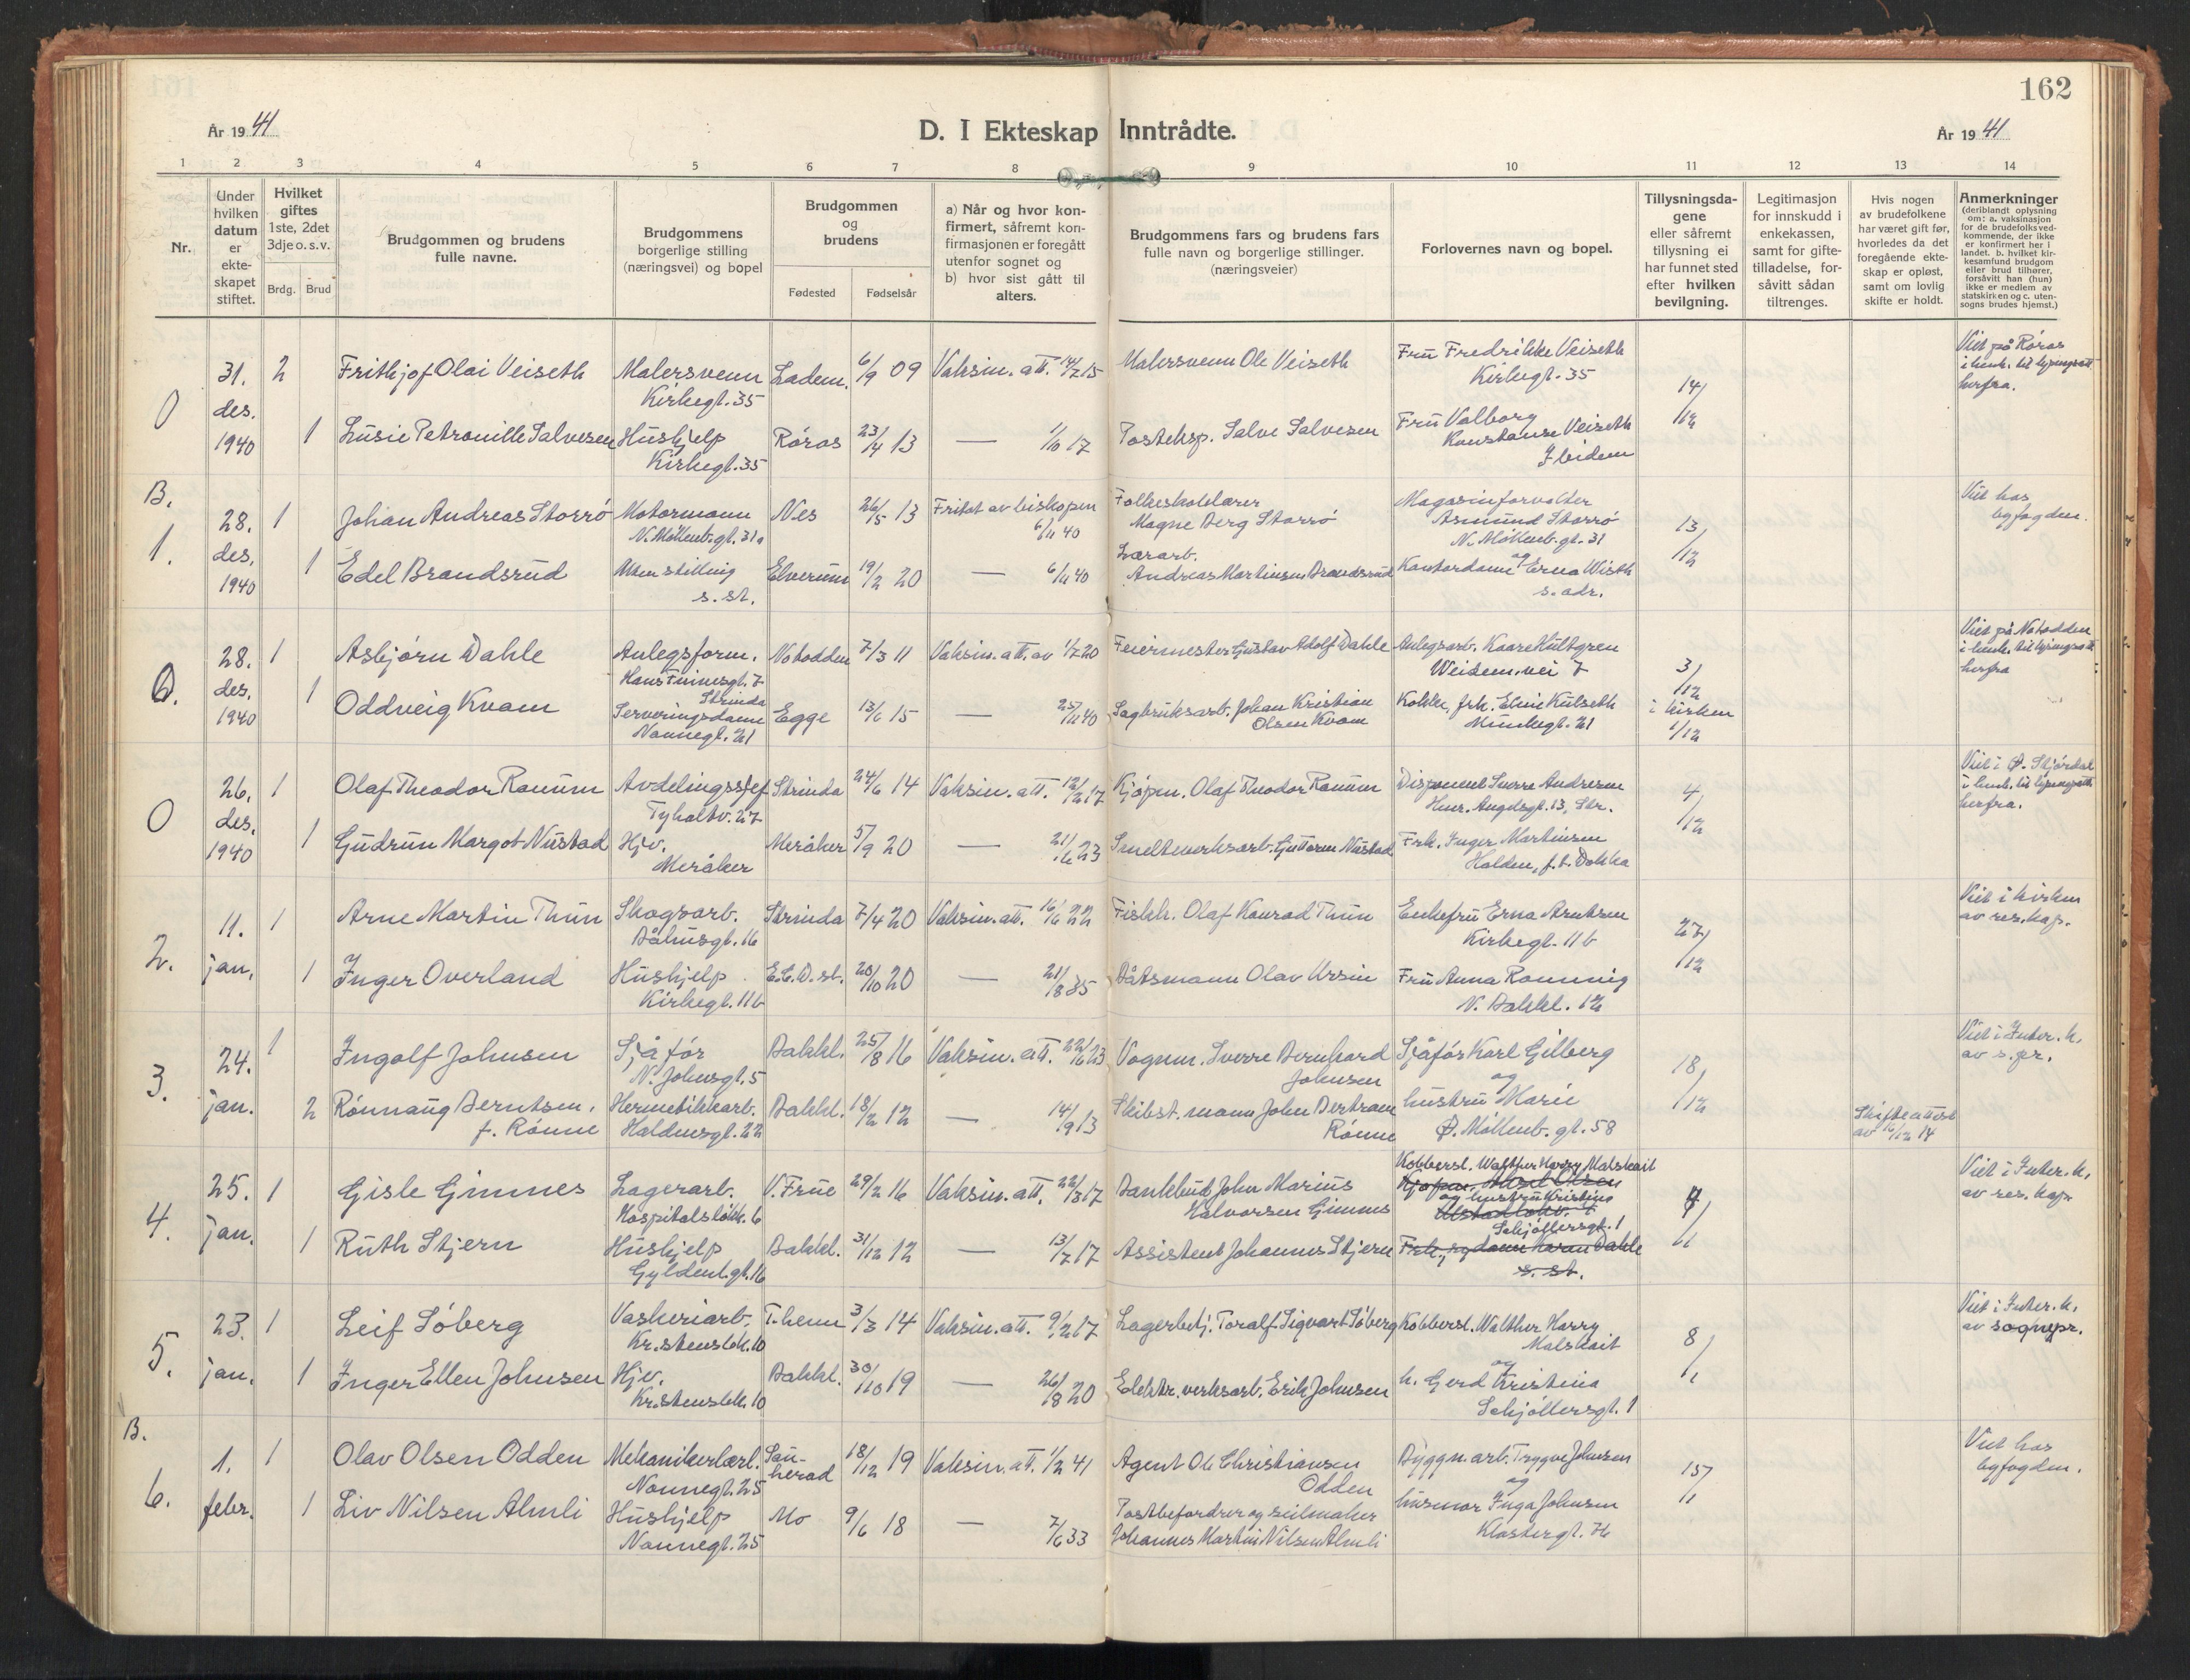 162
År 1941
D. I Ekteskap Inntrådte.
År 1941
1 2 3 4 5 6 7 8 9 10 11 12 13 14
Nr.
Under hvilken datum er ekteskapet stiftet.
Hvilket giftes 1ste, 2det 3dje o. s. v.
Brdg. Brud
Brudgommen og brudens fulle navne.
Brudgommens borgerlige stilling (næringsvei) og bopel
Brudgommen og brudens
Fødested Fødselsår
a) Når og hvor konfirmert, såfremt konfirmasjonen er foregått utenfor sognet og b) hvor sist gått til alters.
Brudgommens fars og brudens fars fulle navn og borgerlige stillinger. (næringsveier)
Forlovernes navn og bopel.
Tillysningsdagene eller såfremt tillysning ei har funnet sted efter hvilken bevilgning.
Legitimasjon for innskudd i enkekassen, samt for giftetilladelse, forsåvitt sådan tiltrenges.
Hvis nogen av brudefolkene har været gift før, hvorledes da det foregående ekteskap er opløst, samt om lovlig skifte er holdt.
Anmerkninger (deriblandt oplysning om: a. vaksinasjon for de brudefolks vedkommende, der ikke er konfirmert her i landet. b. hvilket kirkesamfund brudgom eller brud tilhører, forsåvitt han (hun) ikke er medlem av statskirken og c. utensogns brudes hjemst.)
0
31. des. 1940
2 Frithjof Olai Veiseth Malersvenn Kirkegt. 35 Ladem. 6/9 09 Vaksin. att. 14/7 15 Malersvenn Ole Veiseth Fru Fredrikke Veiseth Kirkegt. 35 14/12 Viet på Røros i henh. til lysningsatt. herfra.
1 Lusie Petronille Salvesen Hushjelp Kirkegt. 35 Røros 23/4 13 — 1/10 17 Posteksp. Salve Salvesen Fru Valborg Konstanse Veiseth Ibidem
B. 1.
28. des. 1940
1 Johan Andreas Storrø Motormann N. Møllenb. gt. 31a Nes 26/5 13 Fritat av biskopen 6/11 40 Folkeskolelærer Magne Berg Storrø Magasinforvalter Asmund Storrø N. Møllenb. gt. 31 13/12 Viet hos byfogden.
1 Edel Brandsrud Uten stilling s. st. Elverum 19/2 20 — 6/11 40 Andreas Martinsen Brandsrud og Kontordame Erna Wisth s. adr.
0.
28. des. 1940
1 Asbjørn Dahle Anlegsform. Hans Finnesgt. 7 Strinda Notodden 7/3 11 Vaksin. att. av 1/7 20 Feiermester Gustav Adolf Dahle Anlegsarb. Kaare Hultgren Weidem. vei 7 3/12 i kirken 1/12 Viet på Notodden i henh. til lysningsatt. herfra
1 Oddveig Kvam Serveringsdame Nonnegt. 21 Egge 13/6 15 — 25/11 40 Sagbruksarb. Johan Kristian Olsen Kvam Kokke, frk. Eline Kulseth Munkegt. 21
0
26. des. 1940
1 Olaf Theodor Ranum Avdelingssjef Tyholtv. 27 Strinda 24/6 14 Vaksin. att. 12/2 17 Kjøpm. Olaf Theodor Ranum Disponent Sverre Andresen Henr. Angelsgt. 13, Str. 4/12 Viet i Ø. Stjørdal i henh. til lysningsatt. herfra.
1 Gudrun Margot Nustad Hjv. Meråker Meråker 5/9 20 — 21/6 23 Smelteverksarb. Guttorm Nustad Frk. Inger Martinsen Halden, f. t. Dokka
2.
11. jan.
1 Arne Martin Thun Skogsarb. Båhusgt. 16 Strinda 7/4 20 Vaksin. att. 16/6 22 Fiskh. Olaf Konrad Thun Enkefru Erna Arntsen Kirkegt. 11 b 27/12 Viet i kirken av res. kap.
1 Inger Overland Hushjelp Kirkegt. 11 b E. C. D. st. 20/10 20 — 21/8 35 Båtsmann Olav Ursin Fru Anna Rønning N. Bakkl. 12
3.
24. jan.
1 Ingolf Johnsen Sjåfør N. Johnsgt. 5 Bakkl. 25/8 16 Vaksin. att. 22/6 23 Vognm. Sverre Bernhard Johnsen Sjåfør Karl Gilberg og 18/12 Viet i Inter. k. av s. pr.
2 Rønnaug Berntsen, f. Rønne Hermetikkarb. Haldensgt. 22 Bakkl. 18/2 12 — 14/9 13 Skibst. mann John Bertram Rønne hustru Marie Ø. Møllenb. gt. 58 Skifteattest av 16/12 14
4.
25. jan.
1 Gisle Gimnes Lagerarb. Hospitalsløkk. 6 V. Frue 29/2 16 Vaksin. att. 22/3 17 Bankbud John Marius Halvorsen Gimnes Kobbersl. Walther Harry Malskait Kjøpm. Aksel Olsen og hustru Kristina Schjøllersgt. 1 4/1 Viet i Inter. k. av res. kap.
1 Ruth Stjern Hushjelp Gyldenl. gt. 16 Bakkl. 31/12 12 — 13/7 17 Assistent Johannes Stjern Frk., sydame Karan Dahle s. st.
5.
23. jan.
1 Leif Søberg Vaskeriarb. Kr. stenslk. 10 T.heim 3/3 14 Vaksin. att. 9/2 17 Lagerbetj. Toralf Sigvart Søberg Kobbersl. Walther Harry Malskait og 8/1 Viet i Inter. k. av sognepr.
1 Inger Ellen Johnsen Hjv. Kr. stenslk. 10 Bakkl. 30/10 19 — 26/8 20 Elektr. verksarb. Erik Johnsen h. Gerd Kristina Schjøllersgt. 1
B. 6.
1. febr.
1 Olav Olsen Odden Mekanikerlærl. Nonnegt. 25 Sauherad 18/12 19 Vaksin. att. 1/2 41 Agent Ole Christiansen Odden Byggn. arb. Trygve Johnsen og 15/1 Viet hos byfogden.
1 Liv Nilsen Almli Hushjelp Nonnegt. 25 Mo 9/6 18 — 7/6 33 Postbefordrer og seilmaker Johannes Martin Nilsen Almli husmor Inga Johnsen Klostergt. 76